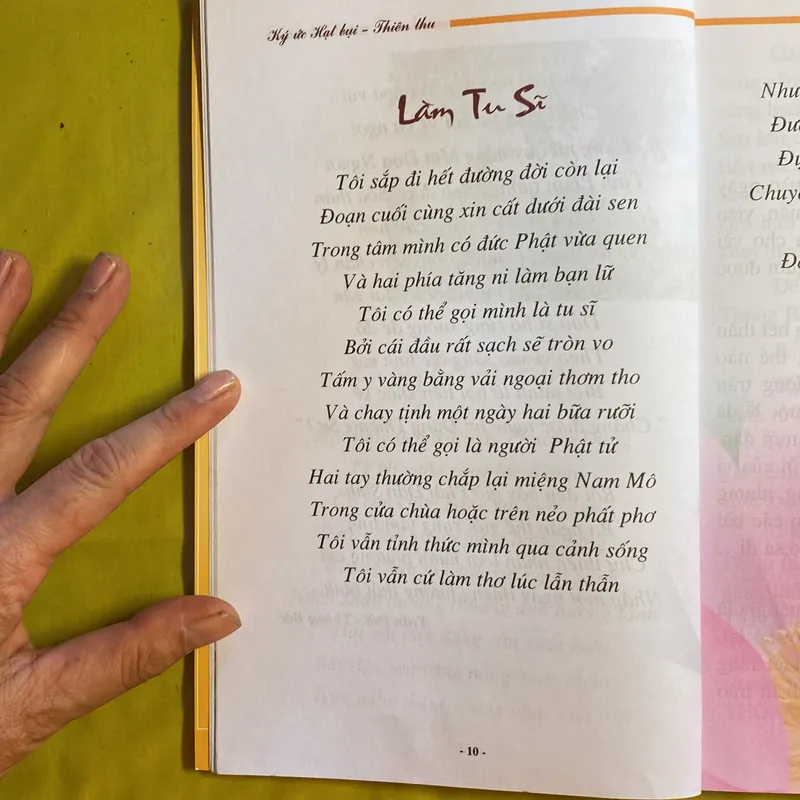 Ký ức Hạt bụi – Thiên thu
Làm Tu Sĩ
Tôi sắp đi hết đường đời còn lại
Đoạn cuối cùng xin cất dưới đài sen
Trong tâm mình có đức Phật vừa quen
Và hai phía tăng ni làm bạn lữ
Tôi có thể gọi mình là tu sĩ
Bởi cái đầu rất sạch sẽ tròn vo
Tấm y vàng bằng vải ngoại thơm tho
Và chay tịnh một ngày hai bữa rưỡi
Tôi có thể gọi là người Phật tử
Hai tay thường chắp lại miệng Nam Mô
Trong cửa chùa hoặc trên nẻo phất phơ
Tôi vẫn tỉnh thức mình qua cảnh sống
Tôi vẫn cứ làm thơ lúc lẫn thẫn
- 10 -
Như
Chuyệ